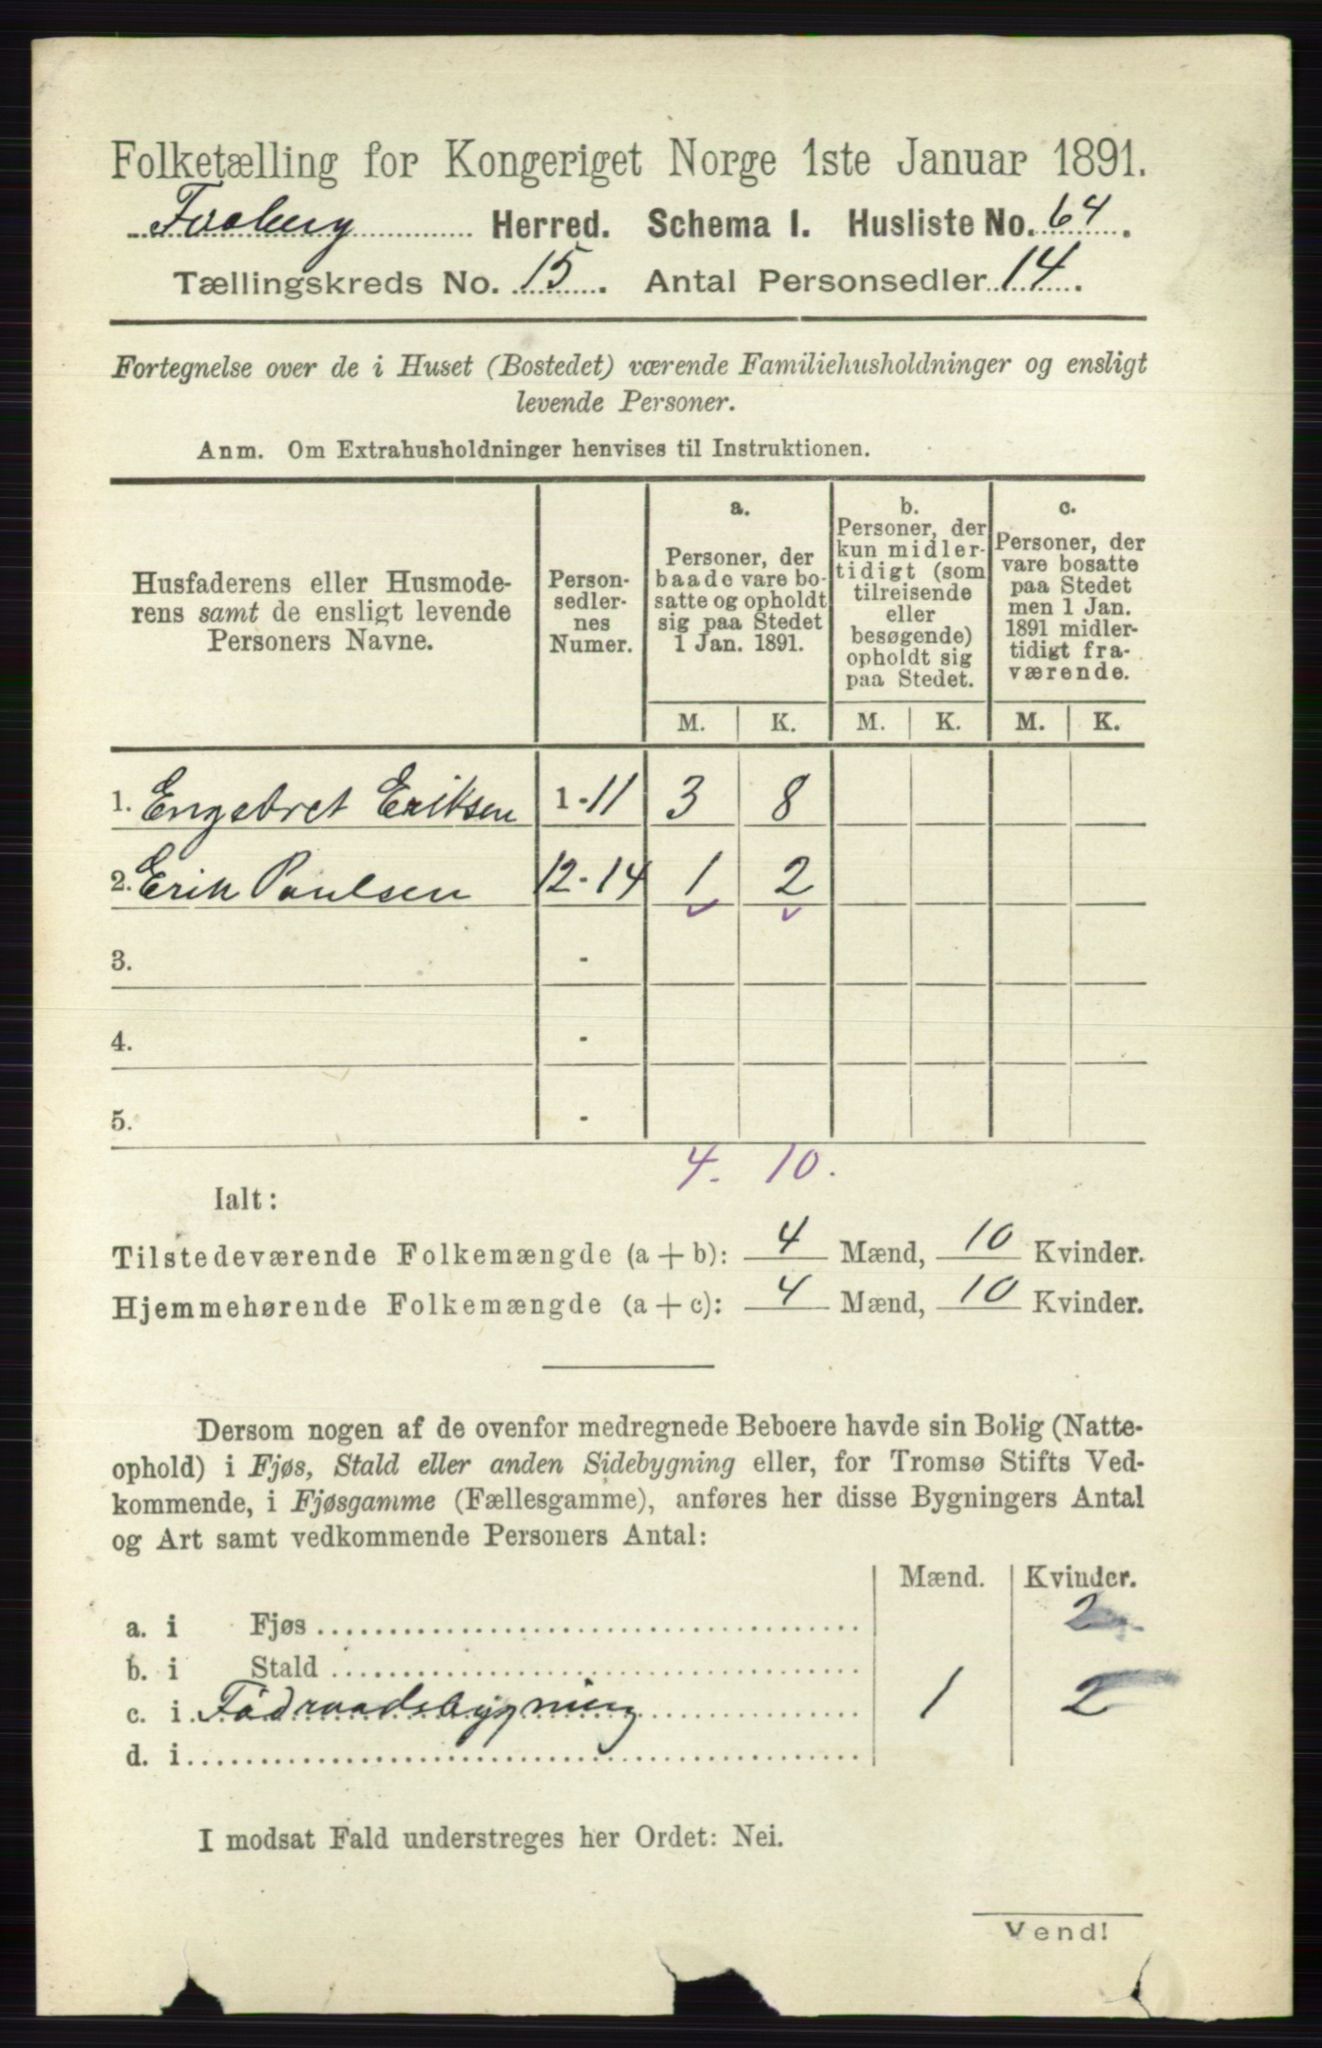 Folketælling for Kongeriget Norge 1ste Januar 1891.
Faaberg Herred. Schema I. Husliste No. 64.
Tællingskreds No. 15. Antal Personsedler 14.
Fortegnelse over de i Huset (Bostedet) værende Familiehusholdninger og ensligt
levende Personer.
Anm. Om Extrahusholdninger henvises til Instruktionen.
Husfaderens eller Husmode-
rens samt de ensligt levende
Personers Navne.
Person-
sedler-
nes
Numer.
a.
Personer, der
baade vare bo-
satte og opholdt
sig paa Stedet
1 Jan. 1891.
b.
Personer, der
kun midler-
tidigt (som
tilreisende
eller
besøgende)
opholdt sig
paa Stedet.
c.
Personer, der
vare bosatte
paa Stedet
men 1 Jan.
1891 midler-
tidigt fra-
værende.
M. K. M. K. M. K.
1. Engebret Eriksen 1-11 3 8
2. Erik Paulsen 12-14 1 2
3. -
4. -
5. -
4. 10.
Ialt:
Tilstedeværende Folkemængde (a + b): 4 Mænd, 10 Kvinder.
Hjemmehørende Folkemængde (a + c): 4 Mænd, 10 Kvinder.
Dersom nogen af de ovenfor medregnede Beboere havde sin Bolig (Natte-
ophold) i Fjøs, Stald eller anden Sidebygning eller, for Tromsø Stifts Ved-
kommende, i Fjøsgamme (Fællesgamme), anføres her disse Bygningers Antal
og Art samt vedkommende Personers Antal:
Mænd. Kvinder.
a. i Fjøs 2
b. i Stald
c. i Födraadsbygning 1 2
d. i
I modsat Fald understreges her Ordet: Nei.
Vend!